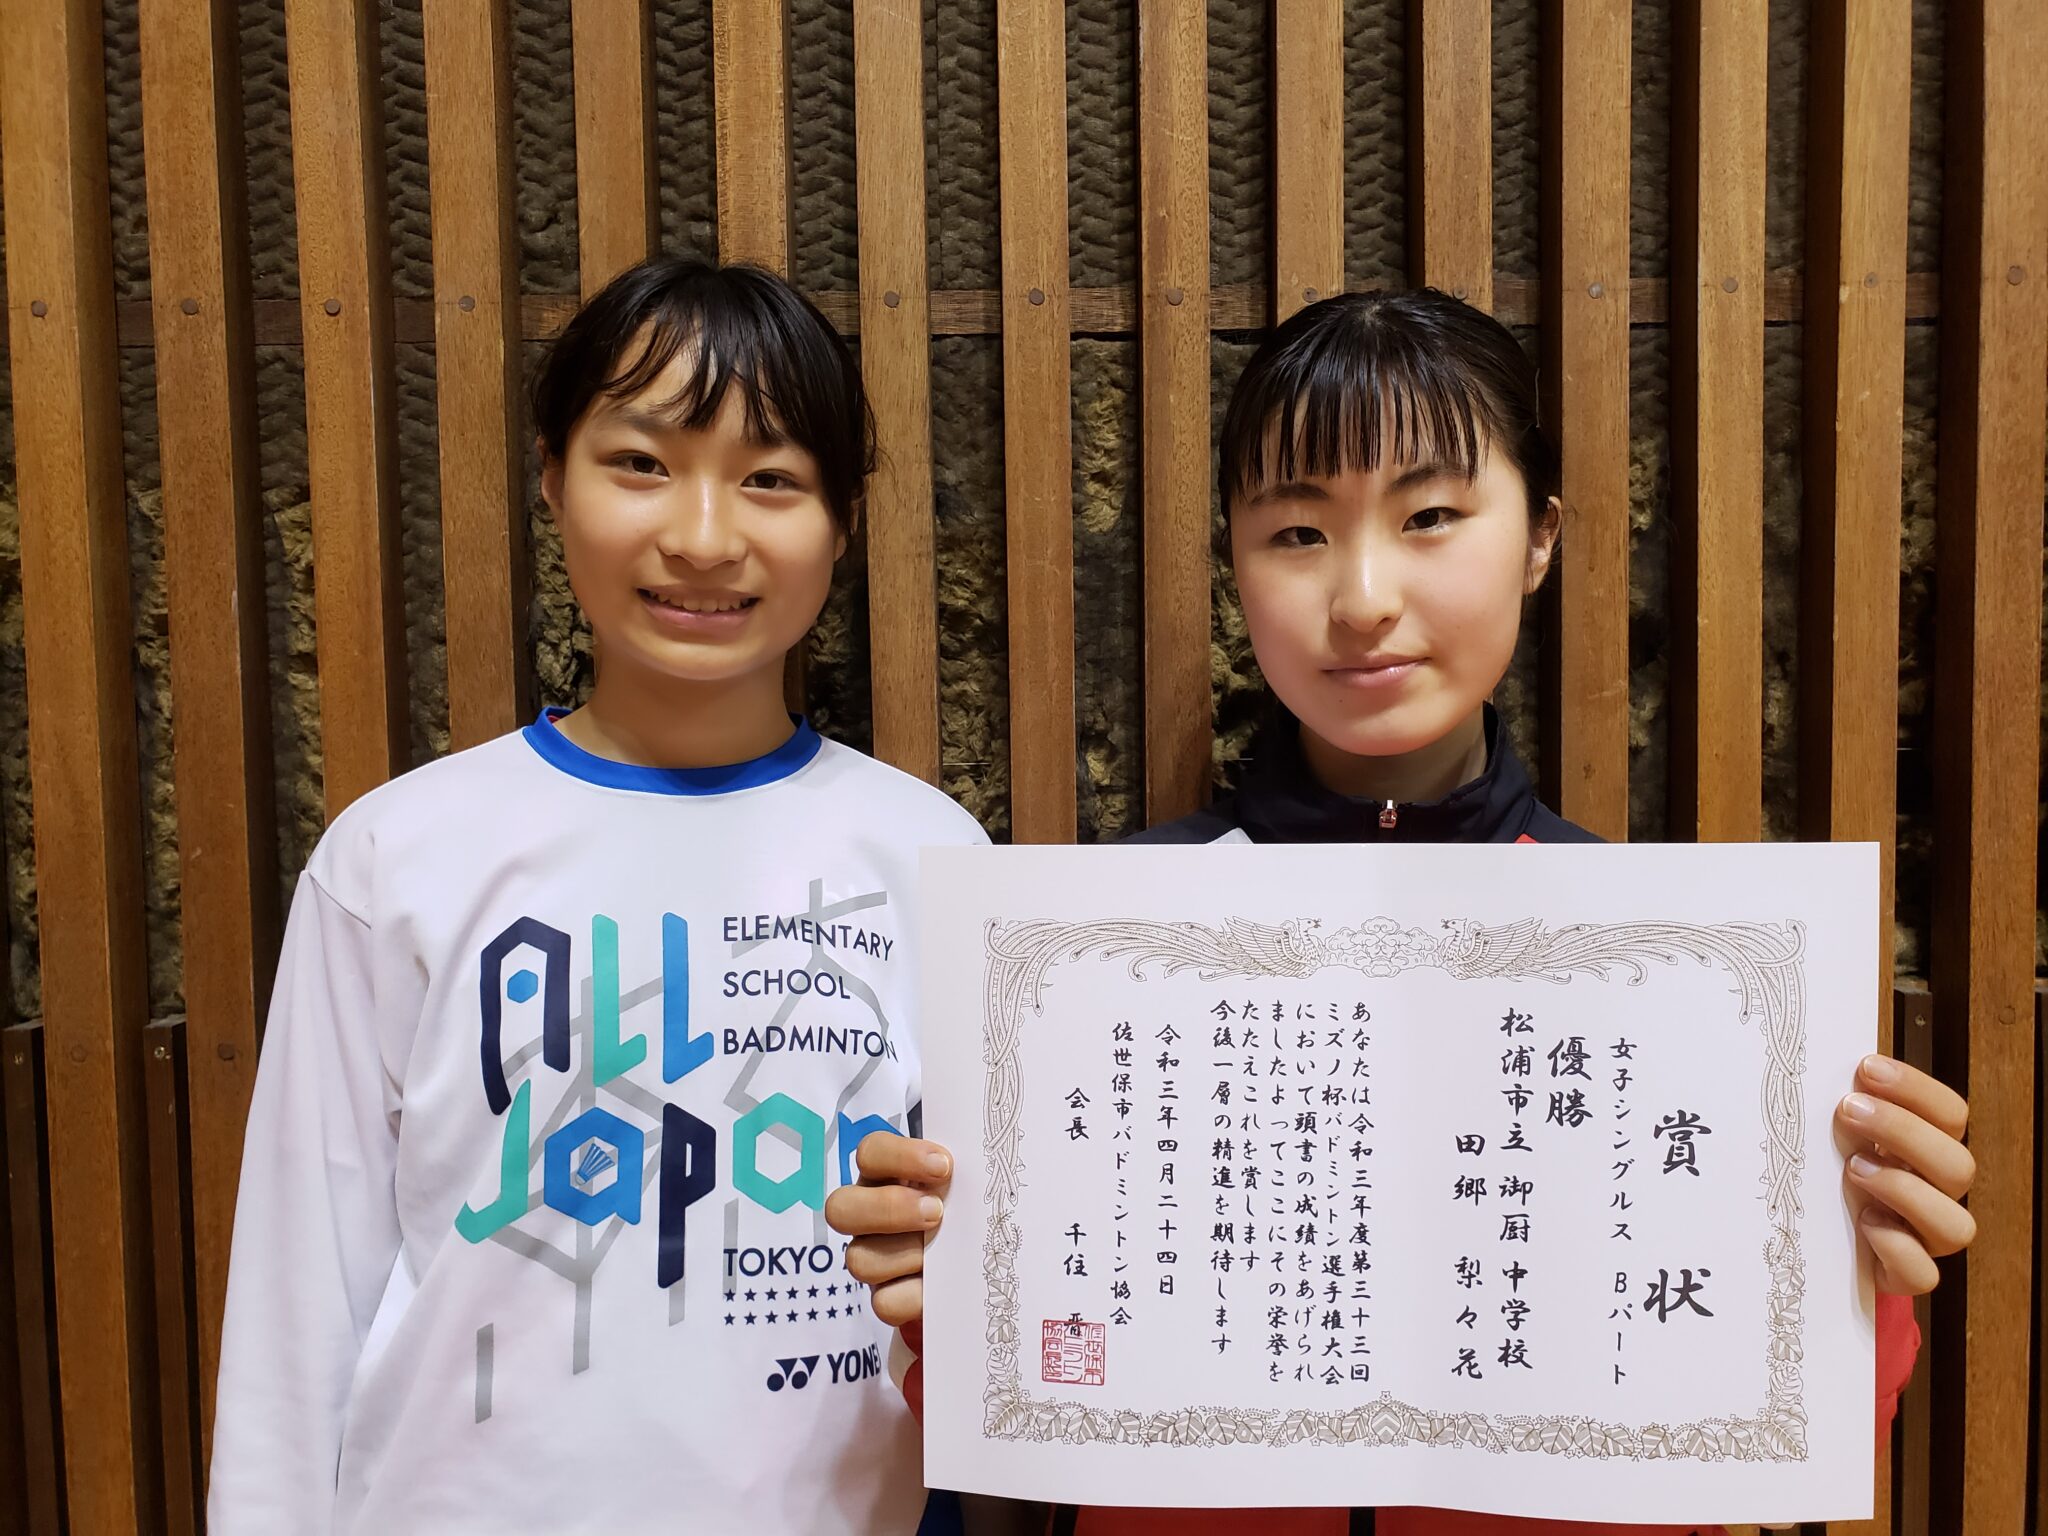 ALL
Japan
ELEMENTARY
SCHOOL
BADMINTON
TOKYO
YONEX
賞状
女子シングルス Bパート
優勝
松浦市立御厨中学校
田郷 梨々花
あなたは令和三年度第三十三回
ミズノ杯バドミントン選手権大会
において頭書の成績をあげられ
ましたよってここにその栄誉を
たたえこれを賞します
今後一層の精進を期待します
令和三年四月二十四日
佐世保市バドミントン協会
会長 千住 晋